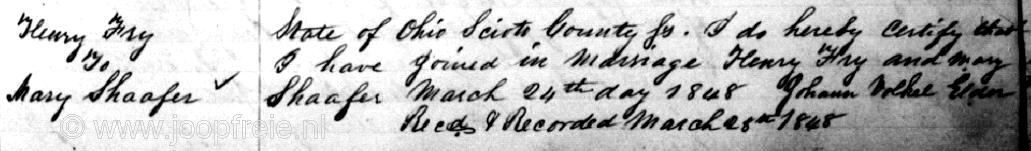 Henry Fry
To
Mary Shaafer ✓
State of Ohio Scioto County Ss. I do hereby certify that
I have joined in marriage Henry Fry and Mary
Shaafer March 24th day 1848 Johann Volkel Elder
Recd & Recorded March 28th 1848
© www.joopfreie.nl